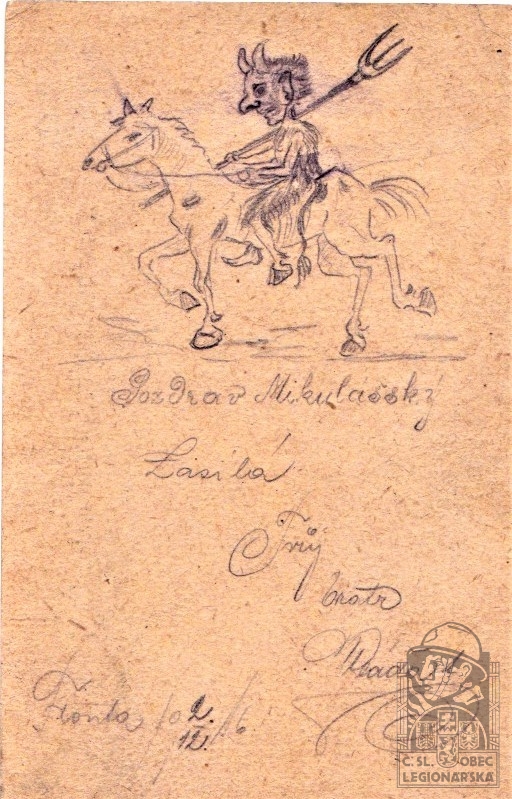 Pozdrav Mikulášský
Zasílá
Tvůj
bratr
Fronta 2./12.
Č. SL. OBEC
LEGIONÁŘSKÁ